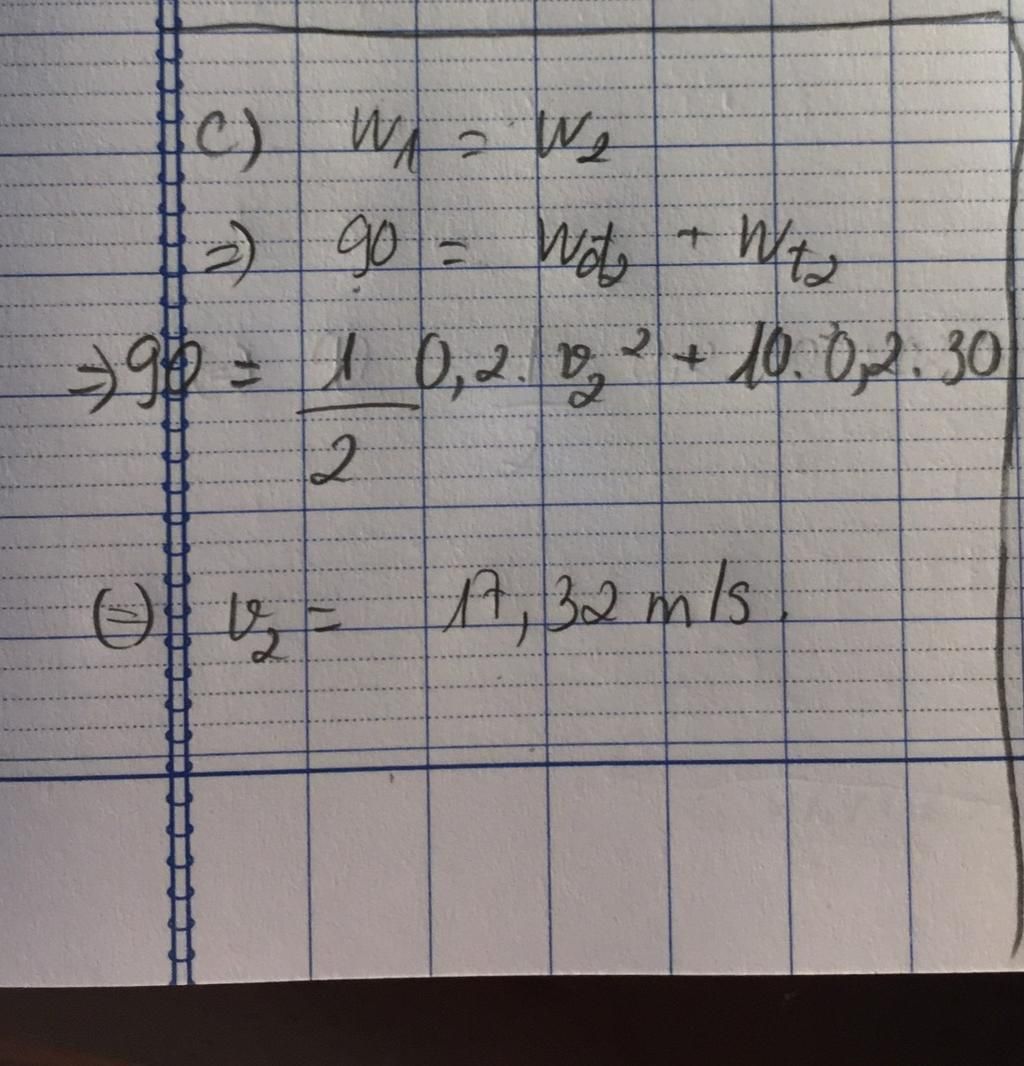 c) W₁ = W₂
=) 90 = Wđ₂ + Wt₂
=) 90 = 1/2 0,2. v₂² + 10. 0,2. 30
(=) v₂ = 17,32 m/s.